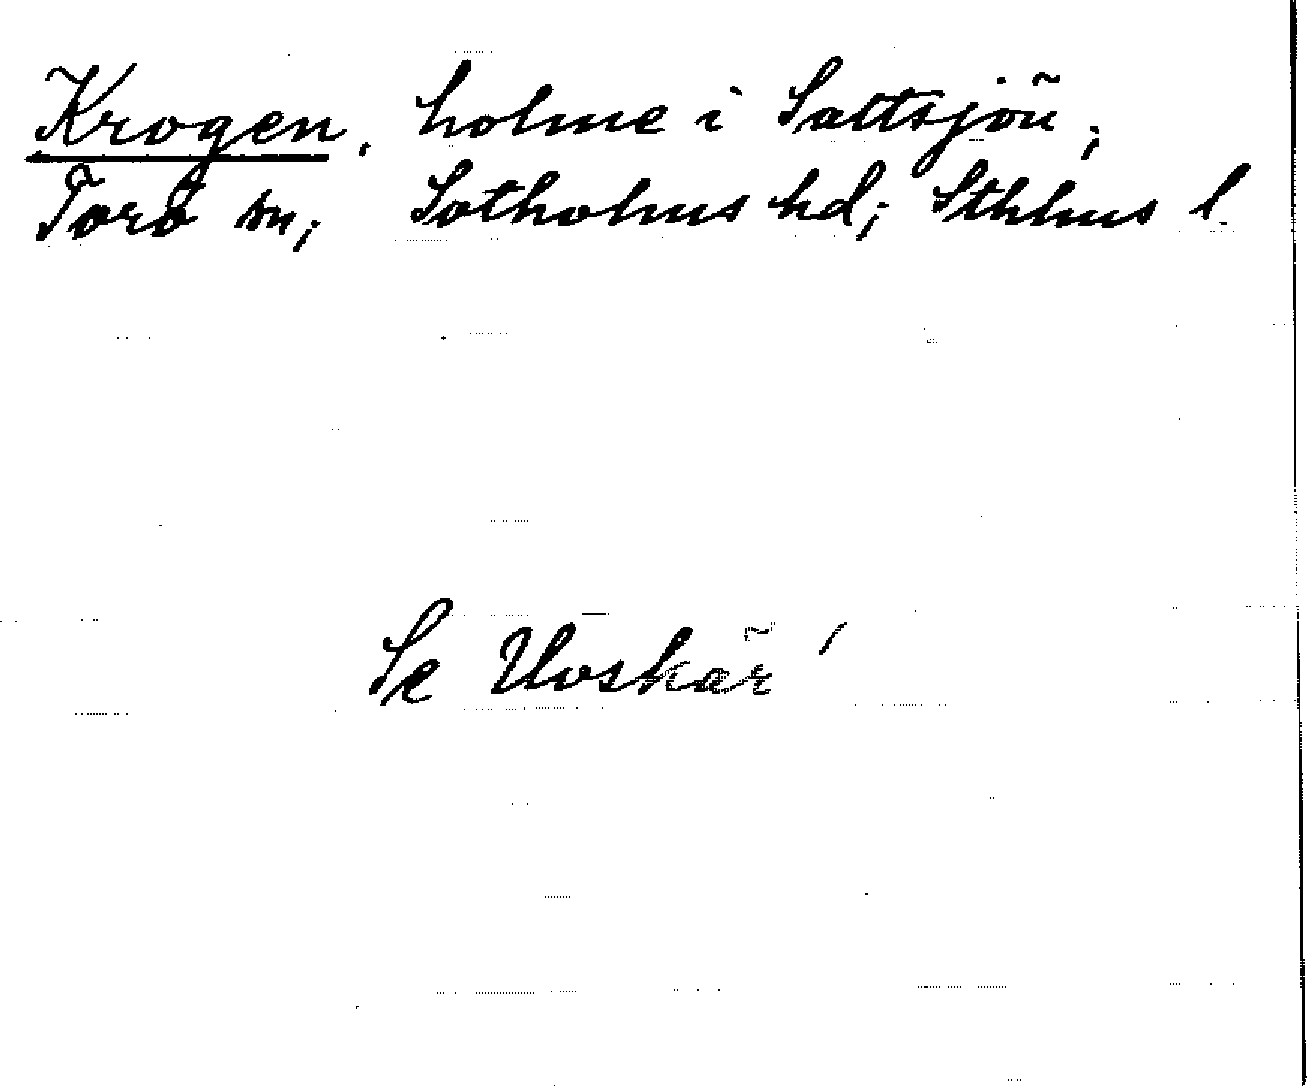 Krogen, holme i Saltsjön;
Torö sn; Sotholms hd; Sthlms l.
Se Uvskär!